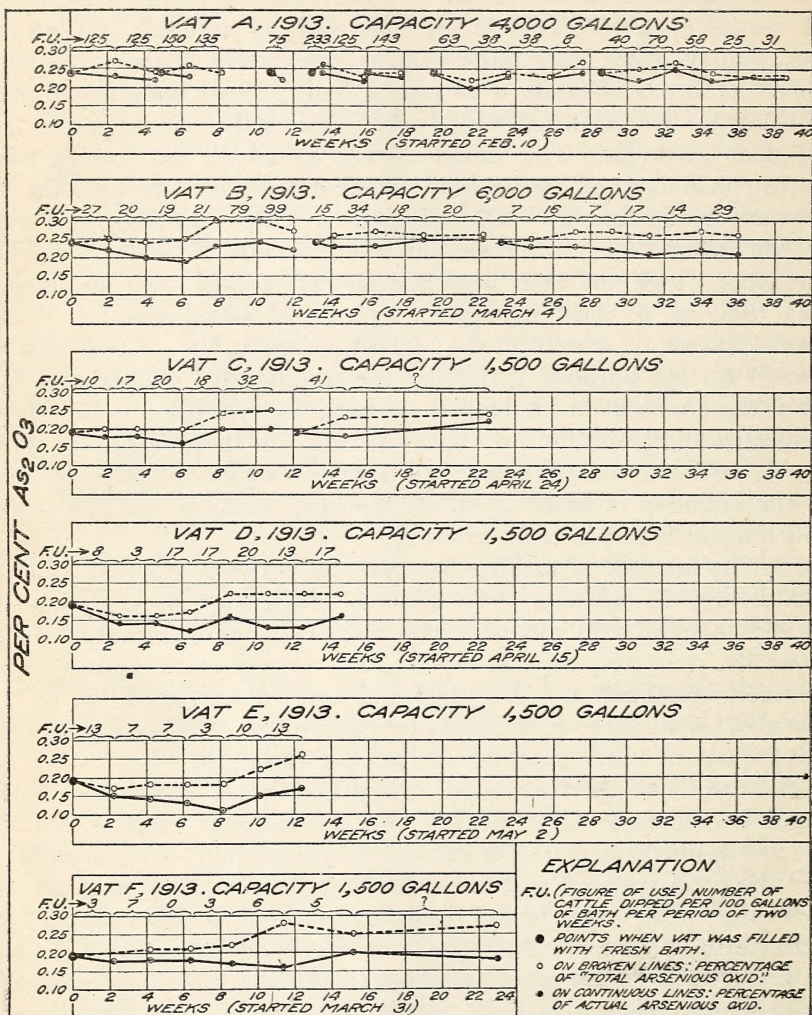 PER CENT AS2 O3
VAT A, 1913. CAPACITY 4,000 GALLONS
F.U.→125 125 150 135 75 233 125 143 63 38 38 8 40 70 58 25 31
0.30
0.25
0.20
0.15
0.10
0 2 4 6 8 10 12 14 16 18 20 22 24 26 28 30 32 34 36 38 40
WEEKS (STARTED FEB. 10)
VAT B, 1913. CAPACITY 6,000 GALLONS
F.U.→27 20 19 21 79 99 15 34 18 20 7 16 7 17 14 29
0.30
0.25
0.20
0.15
0.10
0 2 4 6 8 10 12 14 16 18 20 22 24 26 28 30 32 34 36 38 40
WEEKS (STARTED MARCH 4)
VAT C, 1913. CAPACITY 1,500 GALLONS
F.U.→10 17 20 18 32 41 ?
0.30
0.25
0.20
0.15
0.10
0 2 4 6 8 10 12 14 16 18 20 22 24 26 28 30 32 34 36 38 40
WEEKS (STARTED APRIL 24)
VAT D, 1913. CAPACITY 1,500 GALLONS
F.U.→8 3 17 17 20 13 17
0.30
0.25
0.20
0.15
0.10
0 2 4 6 8 10 12 14 16 18 20 22 24 26 28 30 32 34 36 38 40
WEEKS (STARTED APRIL 15)
VAT E, 1913. CAPACITY 1,500 GALLONS
F.U.→13 7 7 3 10 13
0.30
0.25
0.20
0.15
0.10
0 2 4 6 8 10 12 14 16 18 20 22 24 26 28 30 32 34 36 38 40
WEEKS (STARTED MAY 2)
VAT F, 1913. CAPACITY 1,500 GALLONS
F.U.→3 7 0 3 6 5 ?
0.30
0.25
0.20
0.15
0.10
0 2 4 6 8 10 12 14 16 18 20 22 24
WEEKS (STARTED MARCH 31)
EXPLANATION
F.U. (FIGURE OF USE) NUMBER OF
CATTLE DIPPED PER 100 GALLONS
OF BATH PER PERIOD OF TWO
WEEKS.
● POINTS WHEN VAT WAS FILLED
WITH FRESH BATH.
○ ON BROKEN LINES: PERCENTAGE
OF "TOTAL ARSENIOUS OXID."
● ON CONTINUOUS LINES: PERCENTAGE
OF ACTUAL ARSENIOUS OXID.